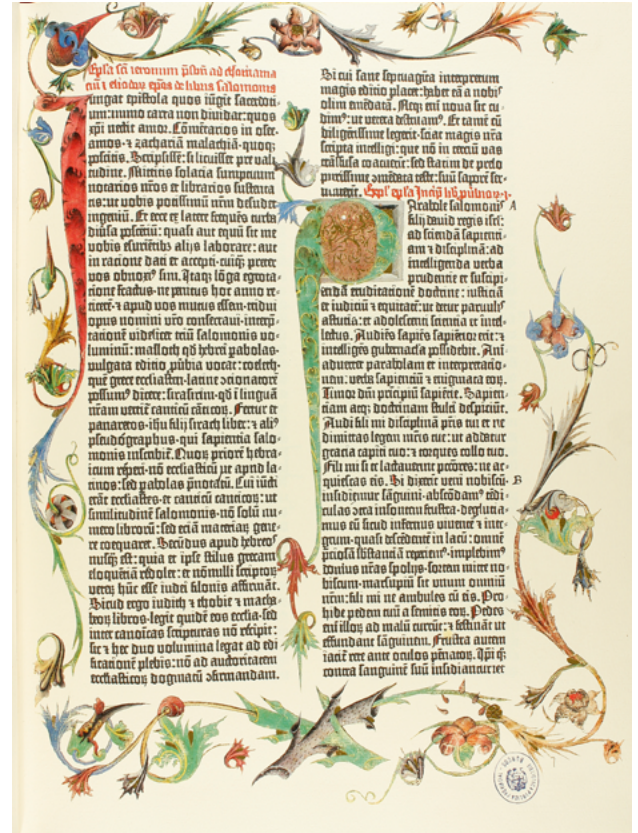 Epistola sancti ieronimi
Iungat epistola quos iungit sacerdoti-
um: immo carta non dividat: quos
xpi nectit amor. Cōmētarios in osee-
amos-⁊ zachariā malachiā-quoqȝ
poscitis. Scripsissē: si licuisset pre vali-
tudine. Mittitis solacia sumptuum
notarios nr̄os et librarios sustenta-
tis: ut vobis potissimū nr̄m desudet
ingeniū. Et ecce ex latere frequēs turba
diversa poscētiū: quasi aut equū sit me
vobis esuriētibꝫ alijs laborare: aut
in racione dati et accepti-cuiqȝ preter
vos obnoxiꝰ sim. Itaqȝ lōga egrota-
tione fractus-ne penitus hoc anno re-
ticerē-⁊ apud vos mutus essem-tridui
opus nomini vr̄o consecravi-interp̄-
tationē videlicet triū salomonis vo-
luminū: masloth qd̄ hebrei pabolas-
vulgata editio ꝓverbia vocat: coeleth-
quē grece ecclesiasten-latine ꝯcionatorē
possumꝰ dicere: sirasirim-qd̄ ī linguā
nr̄am vertit̄ canticū cāticoꝝ. Fertur et
panaretos-ihu filij sirach liber: ⁊ aliꝰ
pseudographus-qui sapientia salo-
monis inscribit̄. Quoꝝ priorē hebra-
icum repperi-nō ecclesiasticū ut apud la-
tinos: sed pabolas p̄notatū. Cui iūcti
erāt ecclesiastes-et canticū canticoꝝ: ut
similitudinē salomonis-nō solū nu-
mero librorū: sed etiā materiaꝝ gene-
re coequaret. Secūdus apud hebreos
nusqȝ est: quia et ipse stilus grecam
eloquētiā redolet: et nōnulli scriptoꝝ
veteꝝ hūc esse iudei filonis affirmāt.
Sicud ergo iudith ⁊ thobie ⁊ macha-
beoꝝ libros-legit quidē eos ecclesia-sed
inter canoicas scripturas nō recipit:
sic ⁊ hec duo volumina legat ad edi-
ficationē plebis: nō ad auctoritatem
ecclesiasticoꝝ dogmatū ꝯfirmandam.
Si cui sane septuagīta interpretum
magis editio placet: habet eā a nobis
olim emēdatā. Neqȝ em̄ nova sic cu-
dimꝰ: ut vetera destruamꝰ. Et tamē cū
diligētissime legerit-sciat magis nr̄a
scripta intelligi: que nō in terciū vas
trāsfusa coacuerīt: sed statim de prelo
purissime ꝯmēdata teste: suū saporē ser-
vaverīt.
Parabole salomonis A
filij david regis isrl̄:
ad sciendā sapienti-
am ⁊ disciplinā: ad
intelligenda verba
prudentie et suscipi-
endā eruditationē doctrine: iusticiā
et iudiciū ⁊ equitatē: ut detur parvulis
astucia: et adolescenti scientia et intel-
lectus. Audiēs sapiēs sapiētior erit: ⁊
intelligēs gubernacula possidebit. Ani-
advertet parabolam et interpretatio-
nem: verba sapientiū ⁊ enigmata eoꝝ.
Timor dn̄i principiū sapiētie. Sapien-
tiam atqȝ doctrinam stulti despiciūt.
Audi fili mi disciplinā pr̄is tui et ne
dimittas legem mr̄is tue: ut addatur
gracia capiti tuo: ⁊ torques collo tuo.
Fili mi si te lactaverint pcc̄ores: ne ac-
quiescas eis. Si dixerīt veni nobiscū- B
insidiemur sāguini-abscōdamꝰ tēdi-
culas ꝯtra insontem frustra-deglutia-
mus eū sicud infernus viventē ⁊ inte-
grum-quasi descēdentē in lacū: omnē
p̄ciosā substātiā reperiemꝰ-implebimꝰ
domus nr̄as spolijs-sortem mitte no-
biscum-marsupiū sit unum omniū
nr̄m: fili mi ne ambules cū eis. Pro-
hibe pedem tuū a semitis eoꝝ. Pedes
em̄ illoꝝ ad malū currūt: ⁊ festināt ut
effundant sāguinem. Frustra autem
iacit̄ rete ante oculos pēnatoꝝ. Ipsi qȝ
contra sanguinē suū insidiantur: et